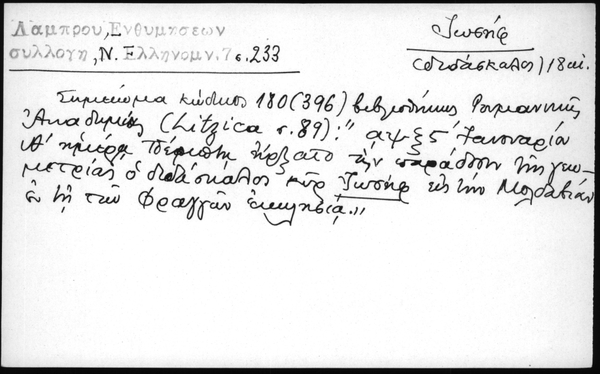 Λάμπρου, Ενθυμήσεων
συλλογή, Ν. Ελληνομν. 7 σ. 233
Ἰωσήφ
(διδάσκαλος) 18 αἰ.
Σημείωμα κώδικος 180 (396) βιβλιοθήκης Ρουμανικῆς
Ἀκαδημίας (Litzica σ. 89): " αψξς΄ Ἰανουαρίου
Α΄ ἡμέρᾳ ἤρξατο τὴν παράδοσιν τῆς γεω-
μετρίας ὁ διδάσκαλος κὺρ Ἰωσὴφ εἰς τὴν Μολδαβίαν
ἐν τῇ τῶν Φραγγῶν ἐκκλησίᾳ."